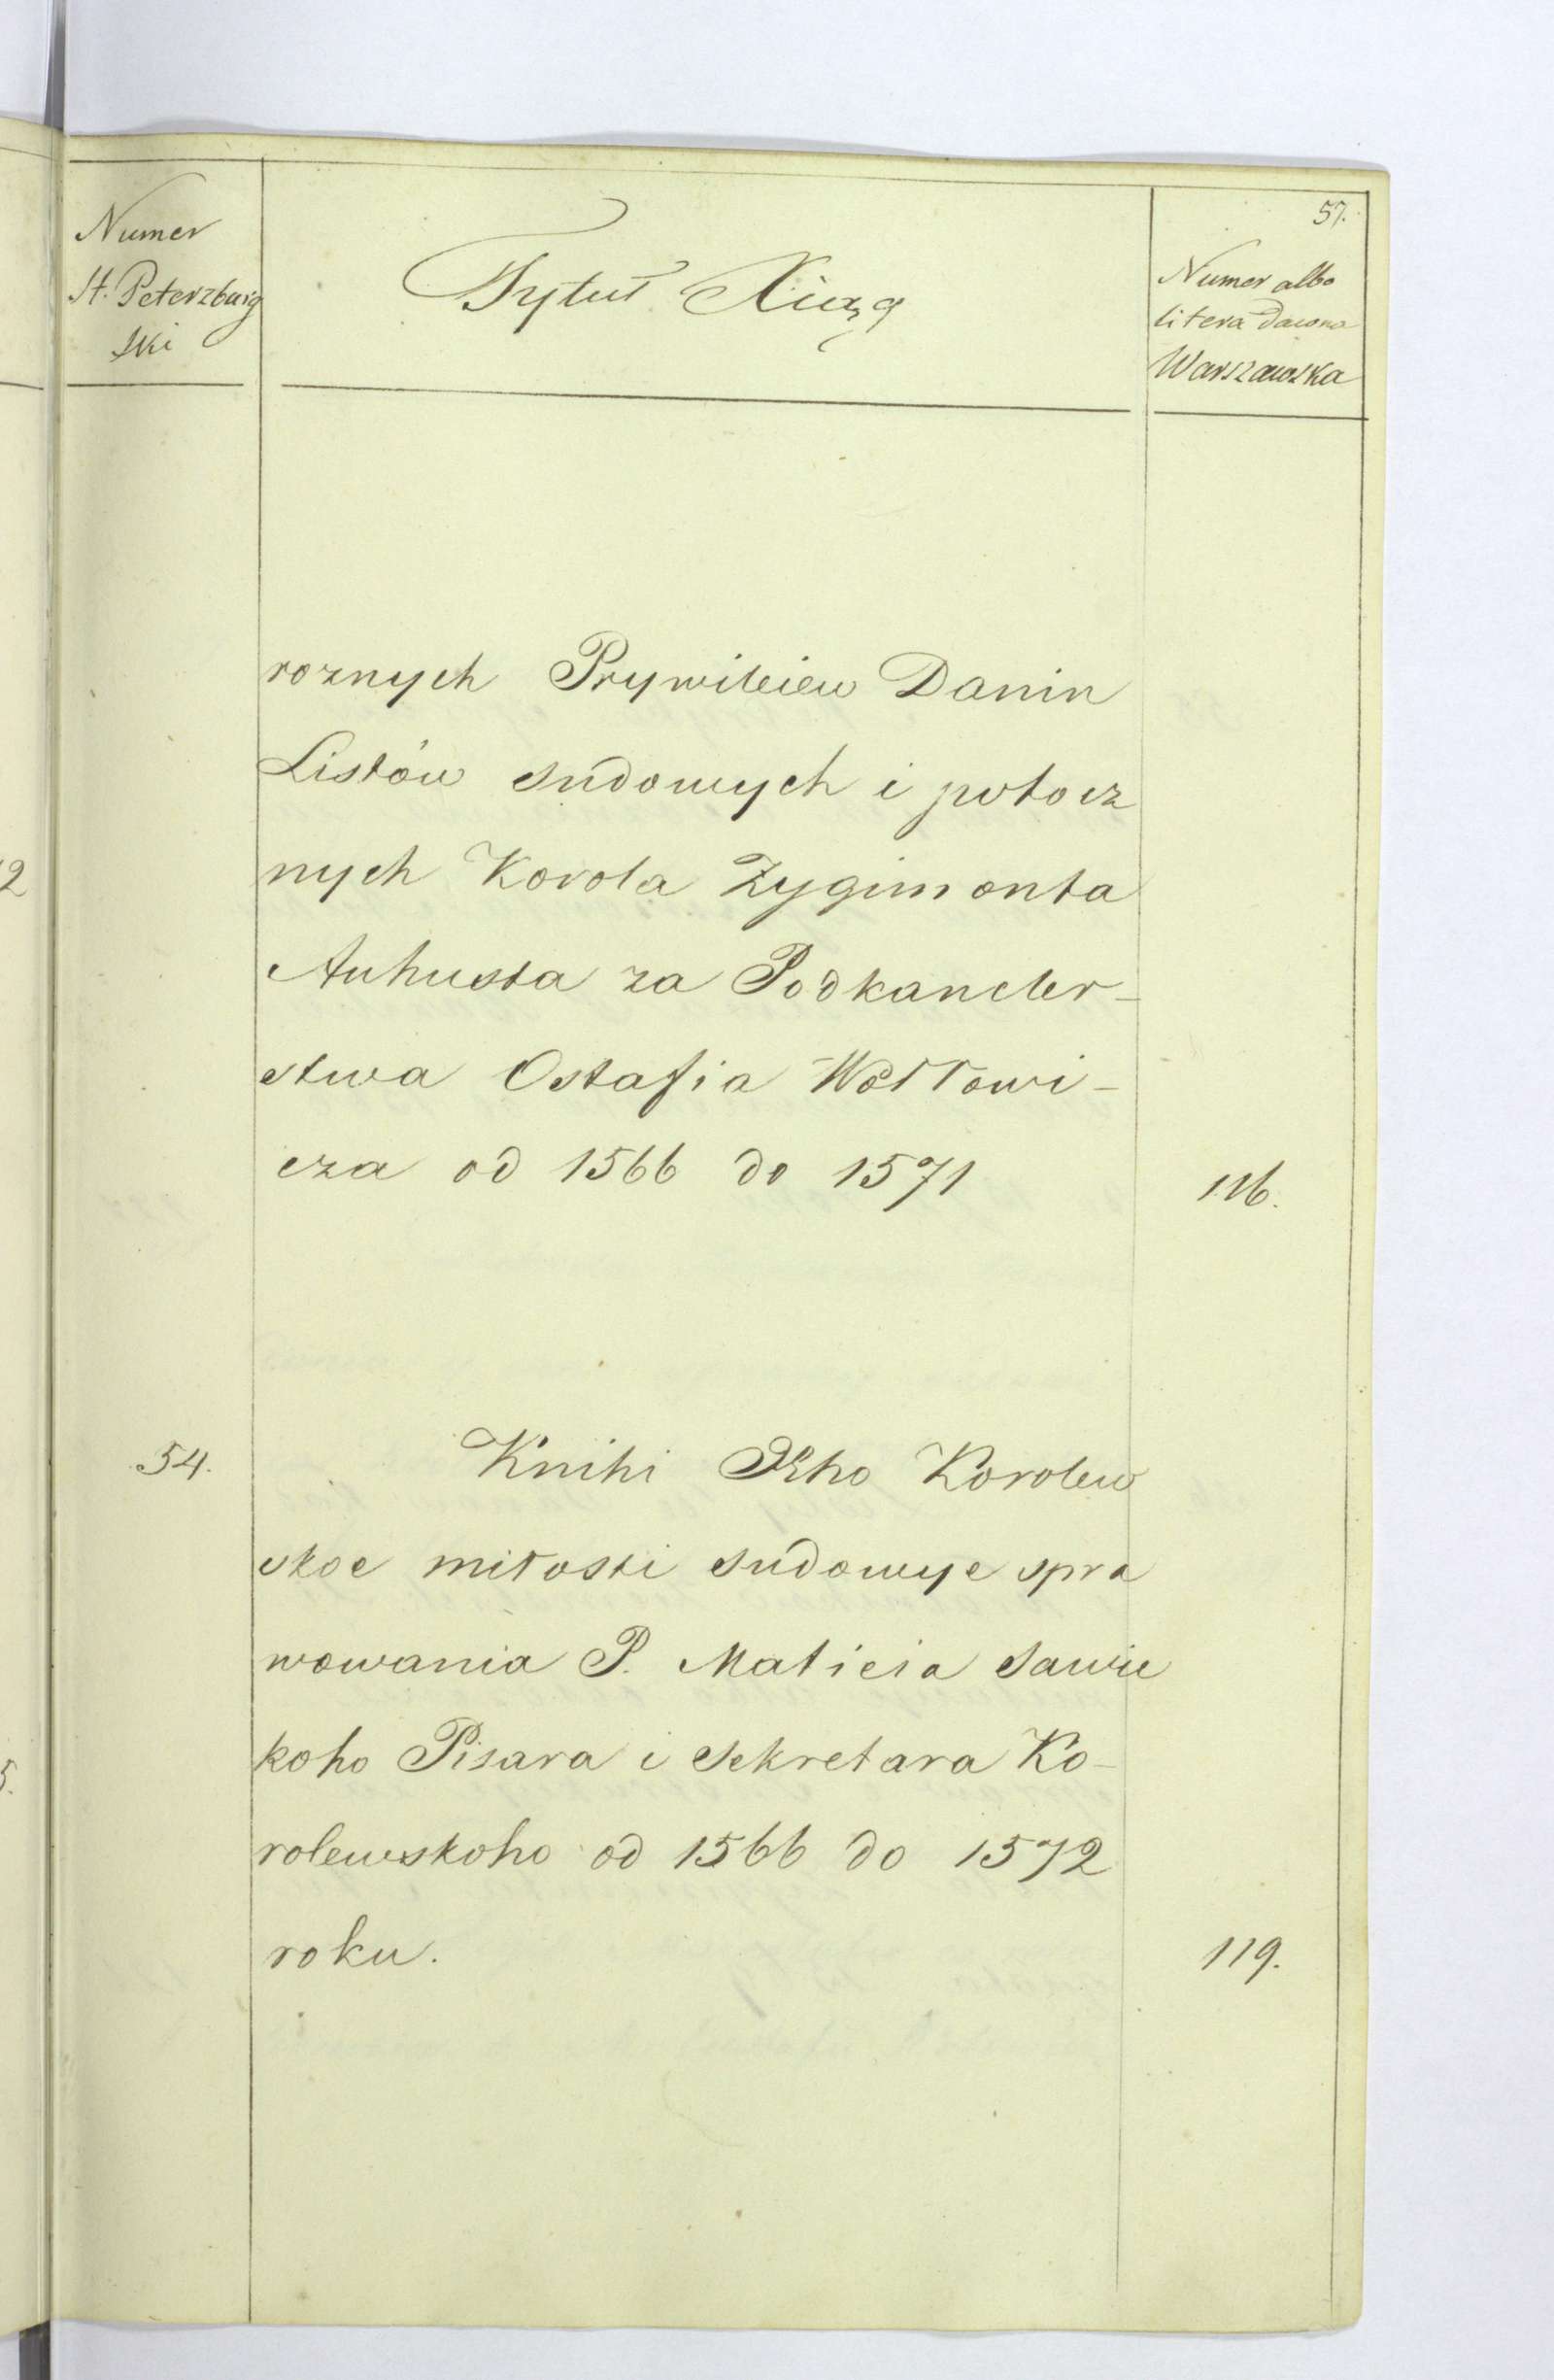 57.
Numer
St. Peterzburg
ski
Tytuł Xiąg
Numer albo
litera Dawna
Warszawska
roznych Prywileiew Danin
Listów sudowych i potocz
nych Korola Zygimonta
Auhusta za Podkancler-
stwa Ostafia Wołłowi-
cza od 1566 do 1571
116.
54.
Knihi Jeho Korolew
skoe miłosti sudowye spra
wowania P. Matieia Sawic
koho Pisara i Sekretara Ko-
rolewskoho od 1566 do 1572
roku.
119.